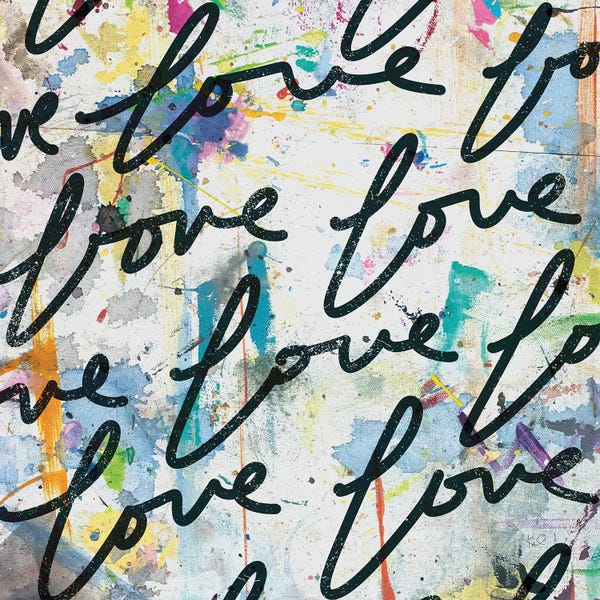 ve love lo
love love
ve love lo
love love